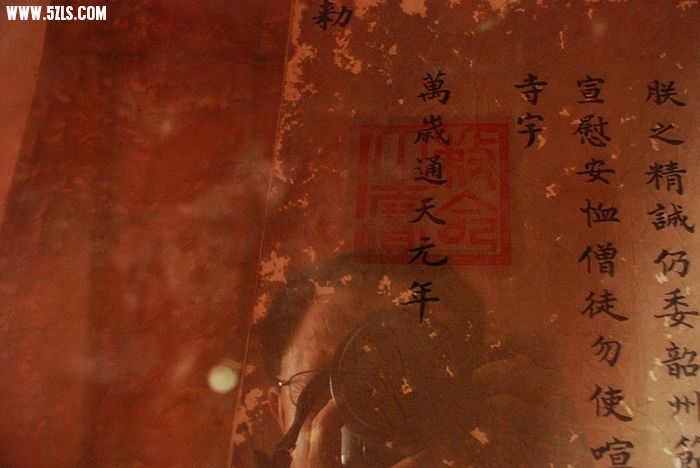 WWW.5ZLS.COM
朕之精誠仍委韶州
宣慰安恤僧徒勿使喧
寺宇
萬歲通天元年
勅